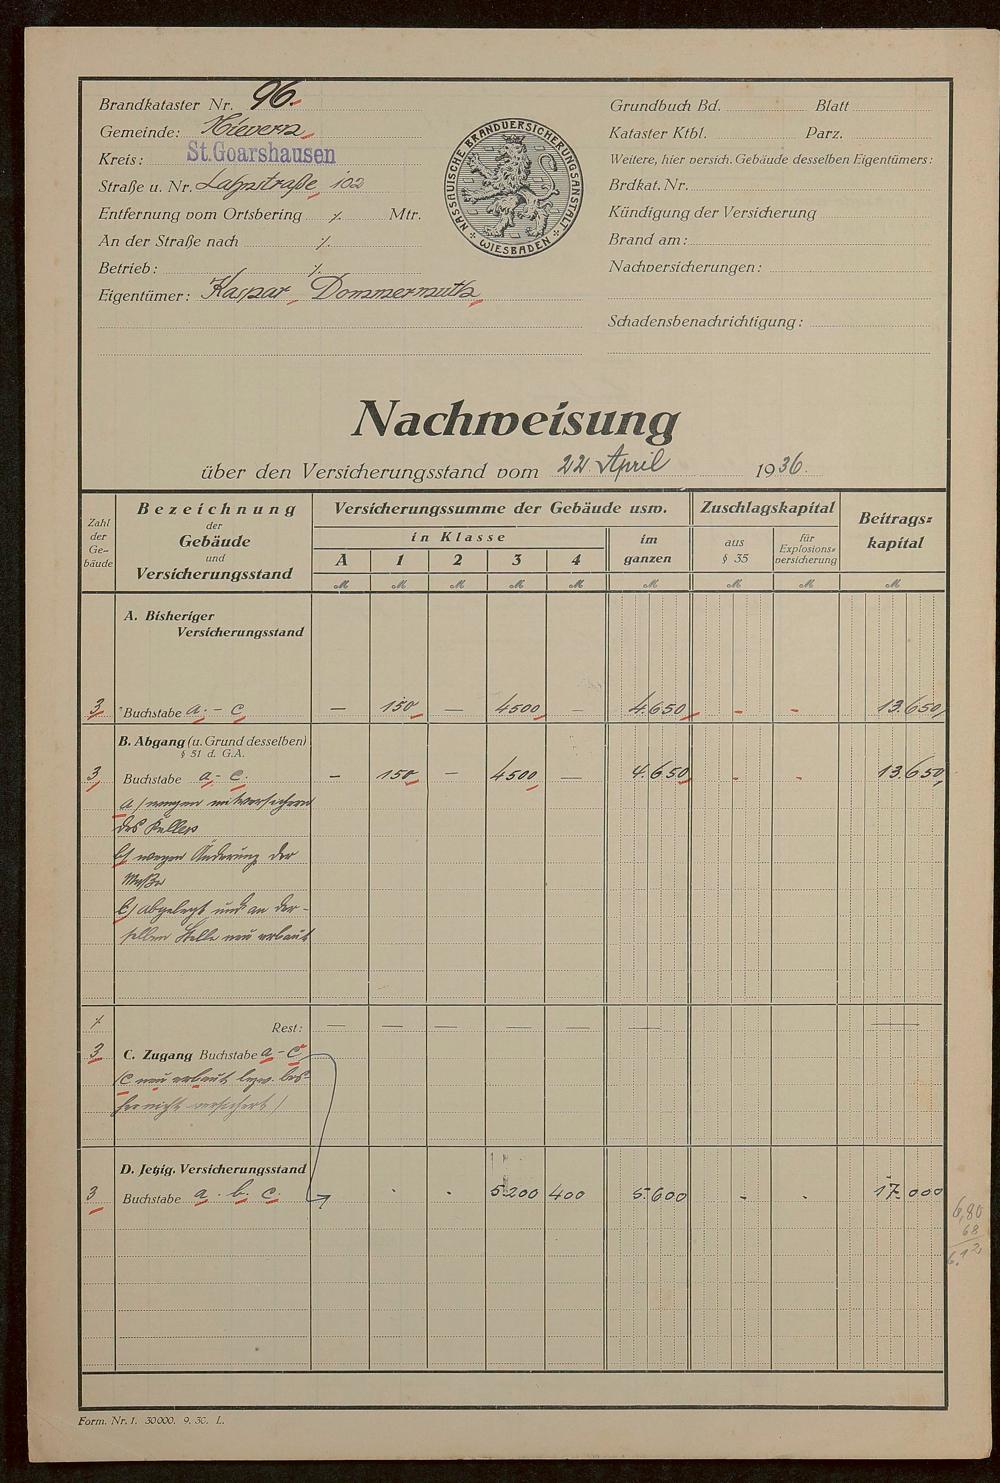 Brandkataster Nr. 96.
Gemeinde: Nievern
Kreis: St. Goarshausen
Straße u. Nr. Lahnstraße 102
Entfernung vom Ortsbering ·/. Mtr.
An der Straße nach ·/.
Betrieb: ·/.
Eigentümer: Kaspar Dommermuth
NASSAUISCHE BRANDVERSICHERUNGSANSTALT
* WIESBADEN *
Grundbuch Bd. Blatt
Kataster Ktbl. Parz.
Weitere, hier versich. Gebäude desselben Eigentümers:
Brdkat. Nr.
Kündigung der Versicherung
Brand am:
Nachversicherungen:
Schadensbenachrichtigung:
Nachweisung
über den Versicherungsstand vom 22 April 1936.
Zahl der Ge-bäude
Bezeichnung
der
Gebäude
und
Versicherungsstand
Versicherungssumme der Gebäude usw.
in Klasse
A 1 2 3 4
im ganzen
Zuschlagskapital
aus § 35
für Explosions-versicherung
Beitrags-kapital
M M M M M M M M M
A. Bisheriger
Versicherungsstand
3 Buchstabe a. - c — 150 — 4500 — 4.650 - - 13.650
B. Abgang (u. Grund desselben)
§ 51 d. G.A.
3 Buchstabe a - c. — 150 — 4500 — 4.650 - - 13.650
a) wegen mitversichern
des Kellers
b) wegen Änderung der
Maße
c) abgelegt und an der-
selben Stelle neu erbaut
·/. Rest: — — — — — — —
3 C. Zugang Buchstabe a - c
(c neu erbaut bezw. bis-
her nicht versichert)
D. Jetzig. Versicherungsstand
3 Buchstabe a. b. c. · · 5200 400 5.600 - · 17.000
6,80
68
6.12
Form. Nr. 1. 30000. 9. 30. L.